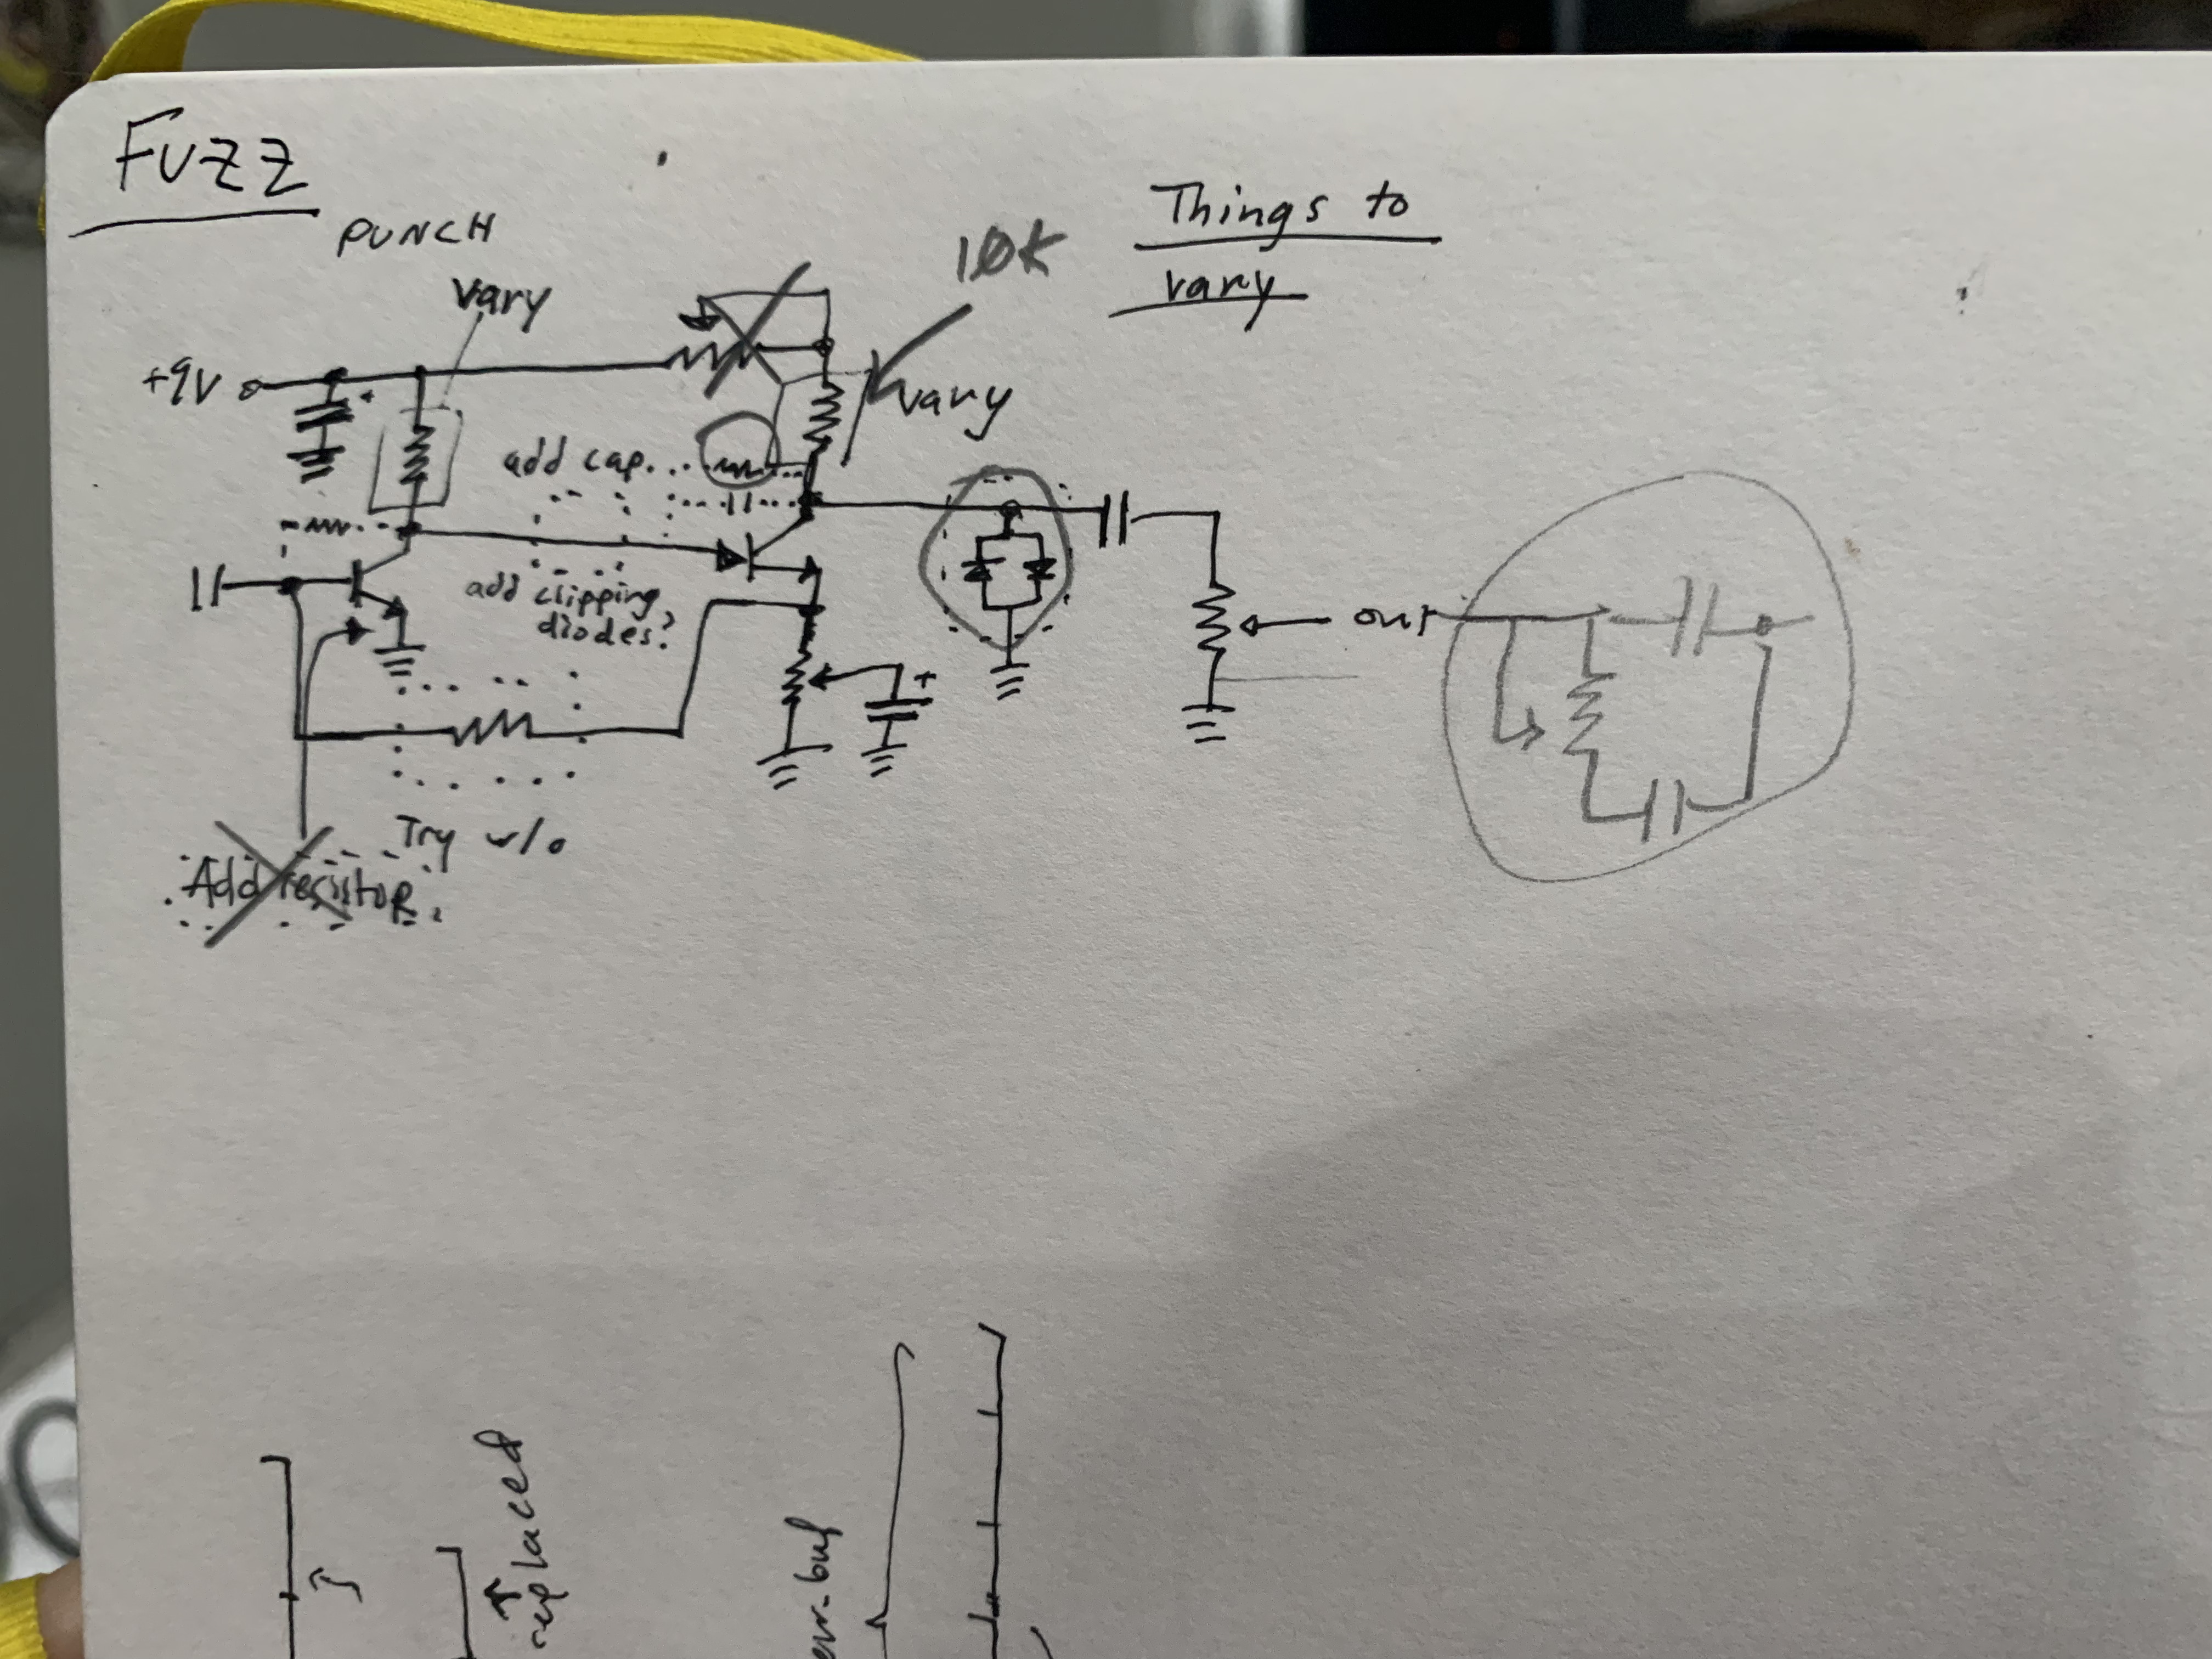 Fuzz
PUNCH
vary
10K
Things to
vary
+9V
+
vary
add cap.
add clipping
diodes?
+
out
Try w/o
Add resistor
replaced